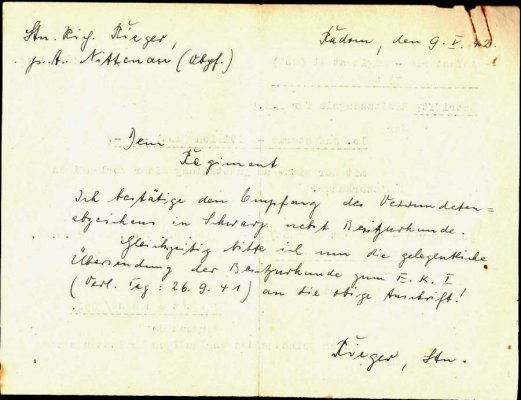 Ltn. Rich. Rieger,
z. Zt. Nittenau (Obpf.)
Radom, den 9. V. 42.
Dem
Regiment
Ich bestätige den Empfang des Verwundeten=
abzeichens in Schwarz nebst Besitzurkunde.
Gleichzeitig bitte ich um die gelegentliche
Übersendung der Besitzurkunde zum E. K. I
(Verl. Tag: 26.9.41) an die obige Anschrift!
Rieger, Ltn.